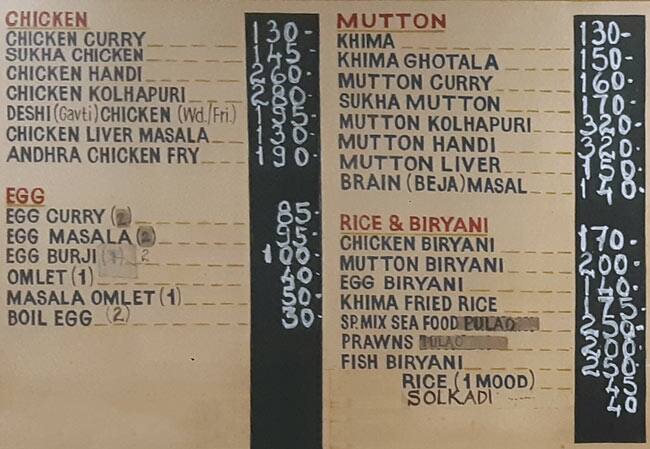 CHICKEN
CHICKEN CURRY 130-
SUKHA CHICKEN 145-
CHICKEN HANDI 260-
CHICKEN KOLHAPURI 280-
DESHI (Gavti) CHICKEN (Wd./Fri.) 195-
CHICKEN LIVER MASALA 130-
ANDHRA CHICKEN FRY 190-
EGG
EGG CURRY (2) 85-
EGG MASALA (2) 95-
EGG BURJI 2 100-
OMLET (1) 40-
MASALA OMLET (1) 50-
BOIL EGG (2) 30
MUTTON
KHIMA 130-
KHIMA GHOTALA 150-
MUTTON CURRY 160-
SUKHA MUTTON 170-
MUTTON KOLHAPURI 320-
MUTTON HANDI 320-
MUTTON LIVER 150-
BRAIN (BEJA) MASAL 140-
RICE & BIRYANI
CHICKEN BIRYANI 170-
MUTTON BIRYANI 200-
EGG BIRYANI 140-
KHIMA FRIED RICE 175
SP. MIX SEA FOOD PULAO 250
PRAWNS PULAO 200
FISH BIRYANI 250
RICE (1 MOOD) 45
SOLKADI 40